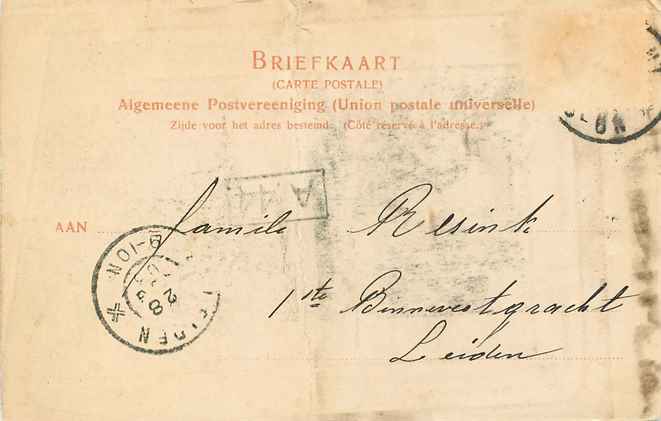 BRIEFKAART
(CARTE POSTALE)
Algemeene Postvereeniging (Union postale universelle)
Zijde voor het adres bestemd. (Côté réservé à l'adresse.)
A 44
AAN familie Resink
1ste Binnevestgracht
Leiden
LEIDEN